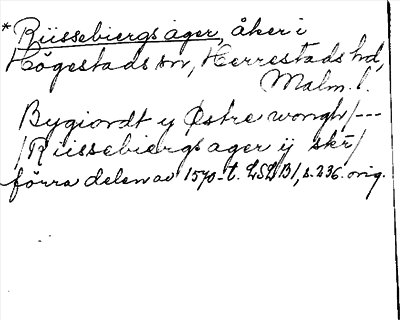 * Riissebiergs ager, åker i
Högestads sn, Herrestads hd,
Malm. l.
Bygiordt y Østre wongh/---
/Riissebiergs ager ij skr/
förra delen av 1570-t. LSDB1, s. 236. orig.